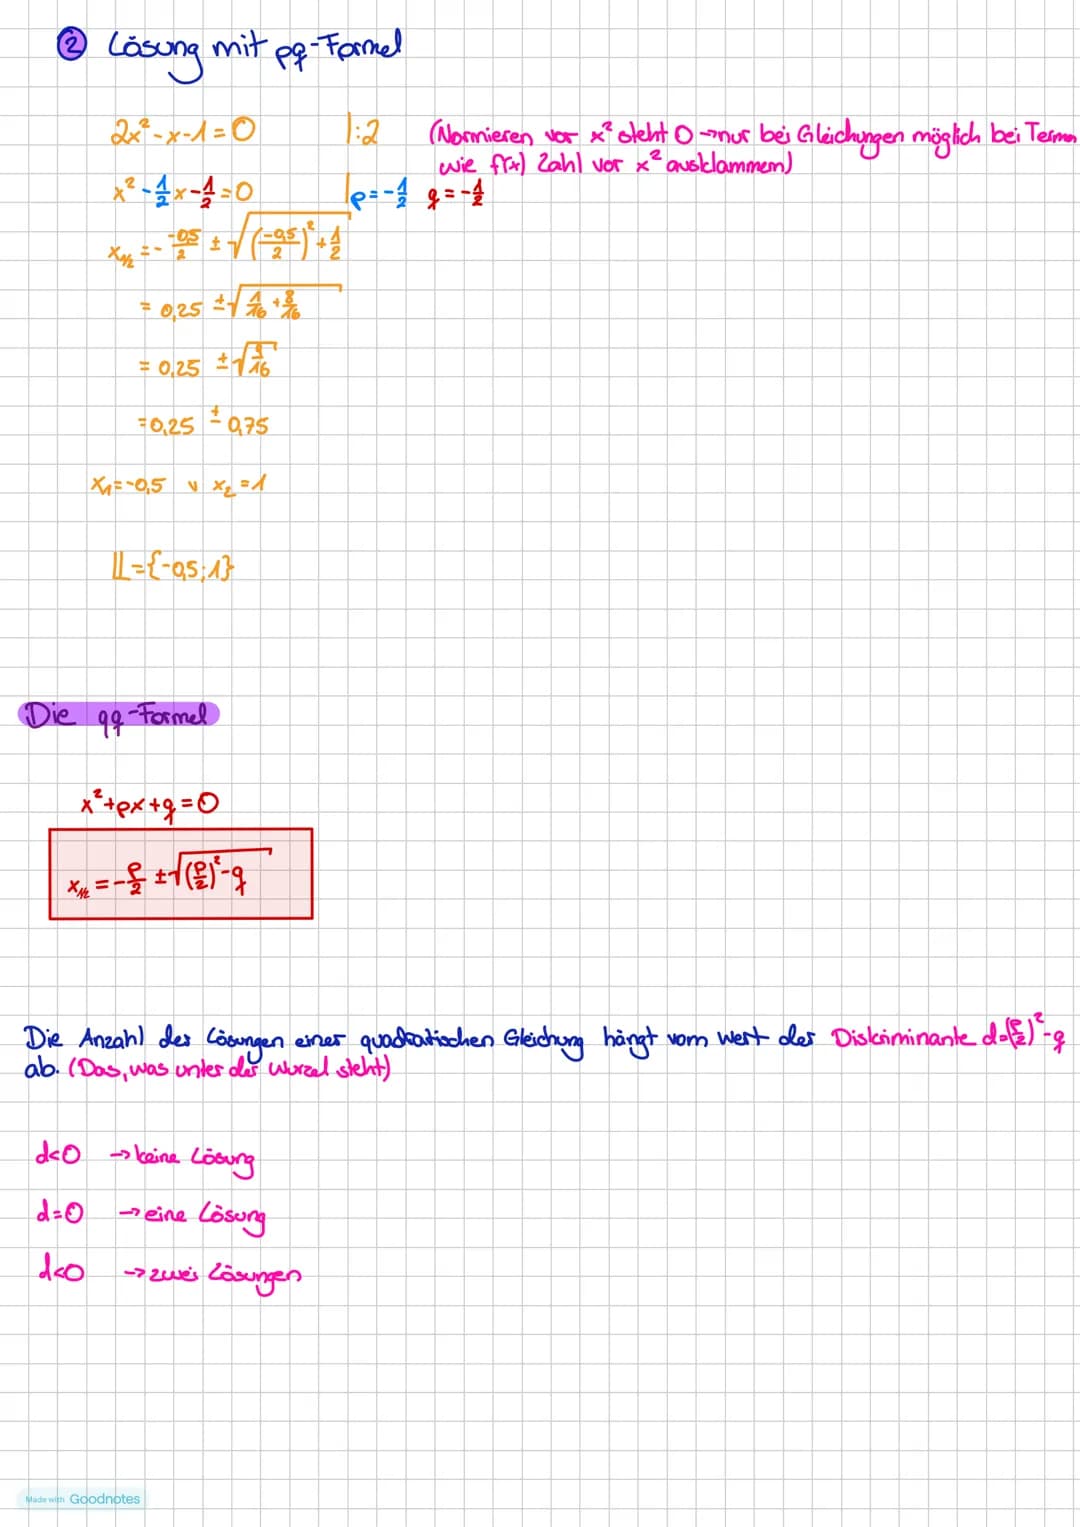 ② Lösung mit pq-Formel
2x² - x - 1 = 0 |:2 (Normieren vor x² steht 0 → nur bei Gleichungen möglich bei Termen
wie f(x) Zahl vor x² ausklammern)
x² - 1/2 x - 1/2 = 0 | p = -1/2 q = -1/2
x₁/₂ = - -0,5/2 ± √((-0,5/2)² + 1/2)
= 0,25 ± √(1/16 + 8/16)
= 0,25 ± √(9/16)
= 0,25 ± 0,75
x₁ = -0,5 ∨ x₂ = 1
𝕃 = {-0,5; 1}
Die qq-Formel
x² + px + q = 0
x₁/₂ = -p/2 ± √((p/2)² - q)
Die Anzahl der Lösungen einer quadratischen Gleichung hängt vom Wert der Diskriminante d = (p/2)² - q
ab. (Das, was unter der Wurzel steht)
d<0 → keine Lösung
d=0 → eine Lösung
d<0 → zwei Lösungen
Made with Goodnotes